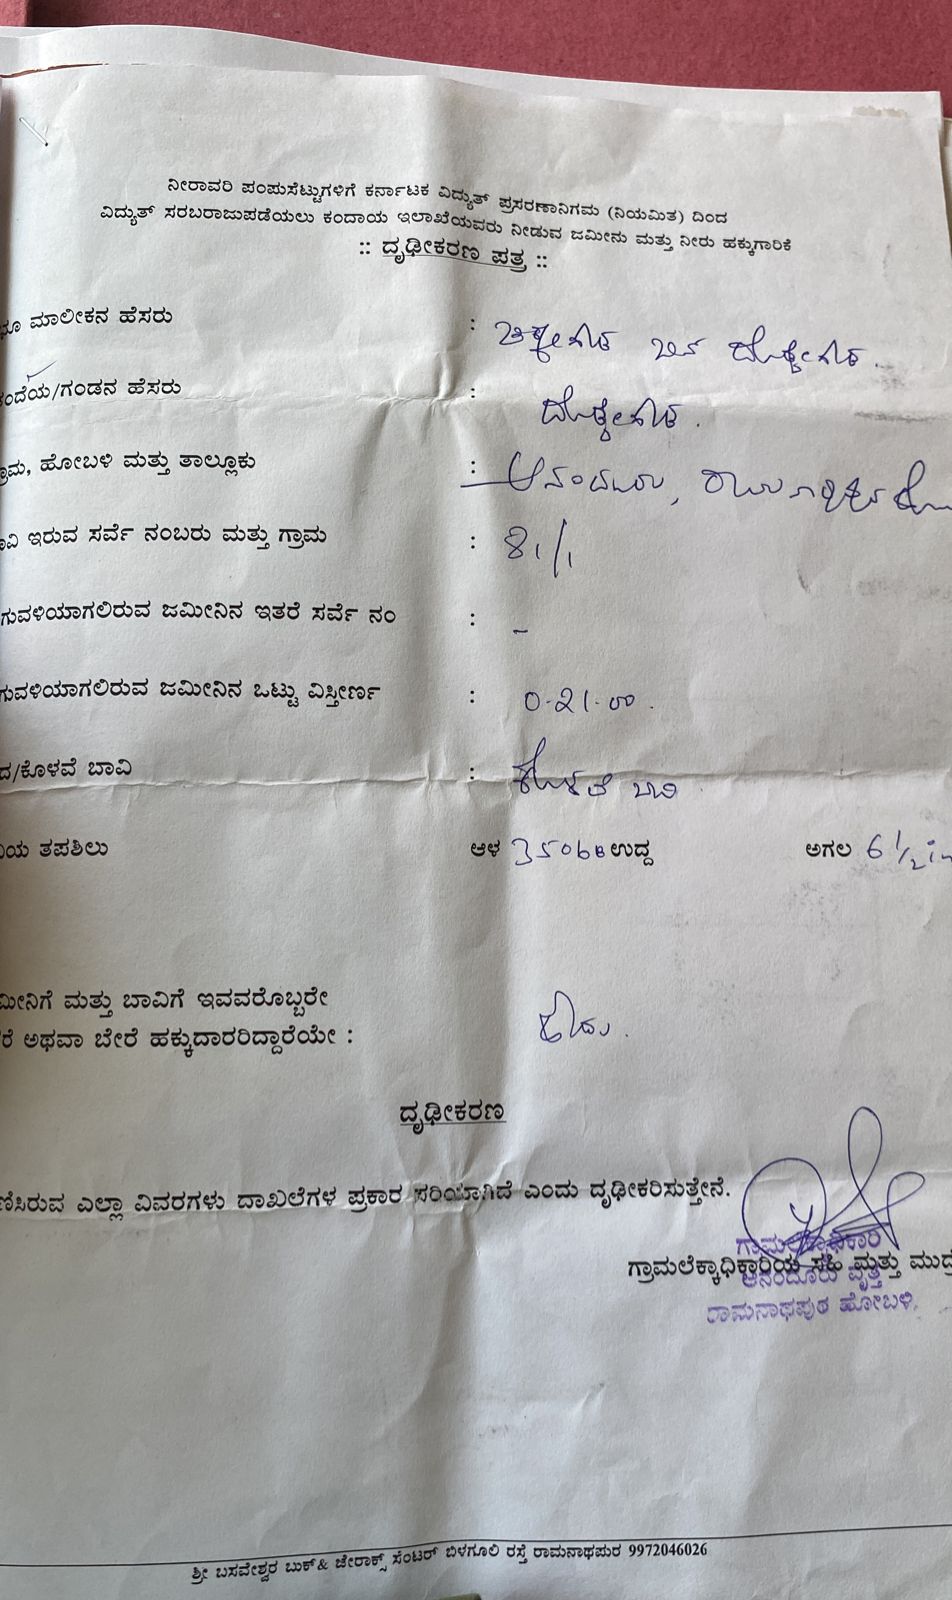 ನೀರಾವರಿ ಪಂಪುಸೆಟ್ಟುಗಳಿಗೆ ಕರ್ನಾಟಕ ವಿದ್ಯುತ್ ಪ್ರಸರಣಾನಿಗಮ (ನಿಯಮಿತ) ದಿಂದ
ವಿದ್ಯುತ್ ಸರಬರಾಜುಪಡೆಯಲು ಕಂದಾಯ ಇಲಾಖೆಯವರು ನೀಡುವ ಜಮೀನು ಮತ್ತು ನೀರು ಹಕ್ಕುಗಾರಿಕೆ
:: ದೃಢೀಕರಣ ಪತ್ರ ::
ಮಾಲೀಕನ ಹೆಸರು : ಚಿಕ್ಕೇಗೌಡ ಬಿನ್ ದೊಡ್ಡೇಗೌಡ.
ಂದೆಯ/ಗಂಡನ ಹೆಸರು : ದೊಡ್ಡೇಗೌಡ.
ರಾಮ, ಹೋಬಳಿ ಮತ್ತು ತಾಲ್ಲೂಕು : ಆನಂದೂರು,
ವಿ ಇರುವ ಸರ್ವೆ ನಂಬರು ಮತ್ತು ಗ್ರಾಮ : 81/1
ಗುವಳಿಯಾಗಲಿರುವ ಜಮೀನಿನ ಇತರೆ ಸರ್ವೆ ನಂ : -
ಗುವಳಿಯಾಗಲಿರುವ ಜಮೀನಿನ ಒಟ್ಟು ವಿಸ್ತೀರ್ಣ : 0-21-00.
ದ/ಕೊಳವೆ ಬಾವಿ : ಕೊಳವೆ ಬಾವಿ
ಯ ತಪಶಿಲು ಆಳ 350 ಉದ್ದ ಅಗಲ 6 1/2 in
ಮೀನಿಗೆ ಮತ್ತು ಬಾವಿಗೆ ಇವವರೊಬ್ಬರೇ
ರೆ ಅಥವಾ ಬೇರೆ ಹಕ್ಕುದಾರರಿದ್ದಾರೆಯೇ : ಹೌದು.
ದೃಢೀಕರಣ
ಣಿಸಿರುವ ಎಲ್ಲಾ ವಿವರಗಳು ದಾಖಲೆಗಳ ಪ್ರಕಾರ ಸರಿಯಾಗಿದೆ ಎಂದು ದೃಢೀಕರಿಸುತ್ತೇನೆ.
ಗ್ರಾಮಲೆಕ್ಕಾಧಿಕಾರಿ
ಗ್ರಾಮಲೆಕ್ಕಾಧಿಕಾರಿಯ ಸಹಿ ಮತ್ತು ಮುದ್ರೆ
ಆನಂದೂರು ವೃತ್ತ
ರಾಮನಾಥಪುರ ಹೋಬಳಿ.
ಶ್ರೀ ಬಸವೇಶ್ವರ ಬುಕ್& ಜೇರಾಕ್ಸ್ ಸೆಂಟರ್ ಬಿಳಗೂಲಿ ರಸ್ತೆ ರಾಮನಾಥಪುರ 9972046026